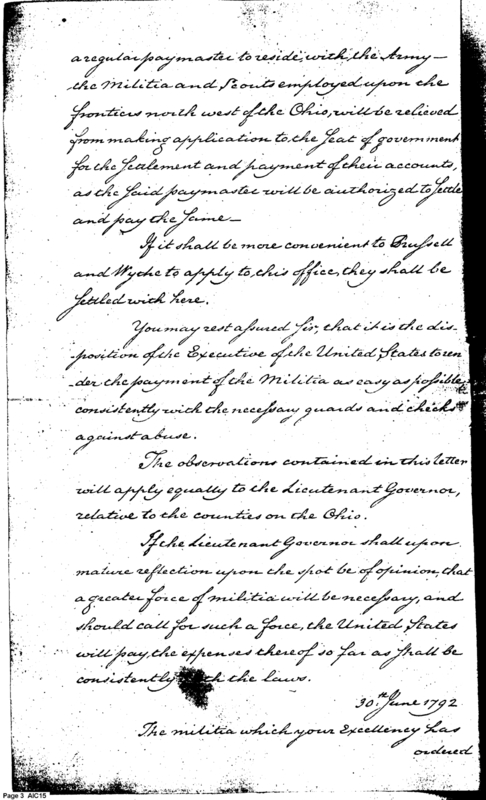 a regular paymaster to reside, with, the Army—
the Militia and Scouts employed upon the
frontiers north west of the Ohio, will be relieved
from making application to, the Seat of government
for the Settlement and payment of their accounts,
as the Said paymaster will be authorized to Settle
and pay the Same—
If it shall be more convenient to Brussell
and Wyche to apply to, this office, they shall be
Settled with here.
You may rest assured Sir, that it is the dis-
-position of the Executive of the United States to ren-
-der the payment of the Militia as easy as possible
consistently with the necessary guards and checks
against abuse.
The observations contained in this letter
will apply equally to the Lieutenant Governor,
relative to the counties on the Ohio.
If the Lieutenant Governor shall upon
mature reflection upon the spot be of opinion, that
a greater force of militia will be necessary, and
should call for such a force, the United States
will pay, the expenses thereof so far as shall be
consistently the laws.
30.th June 1792
The militia which your Excellency has
ordered
Page 3 AIC15